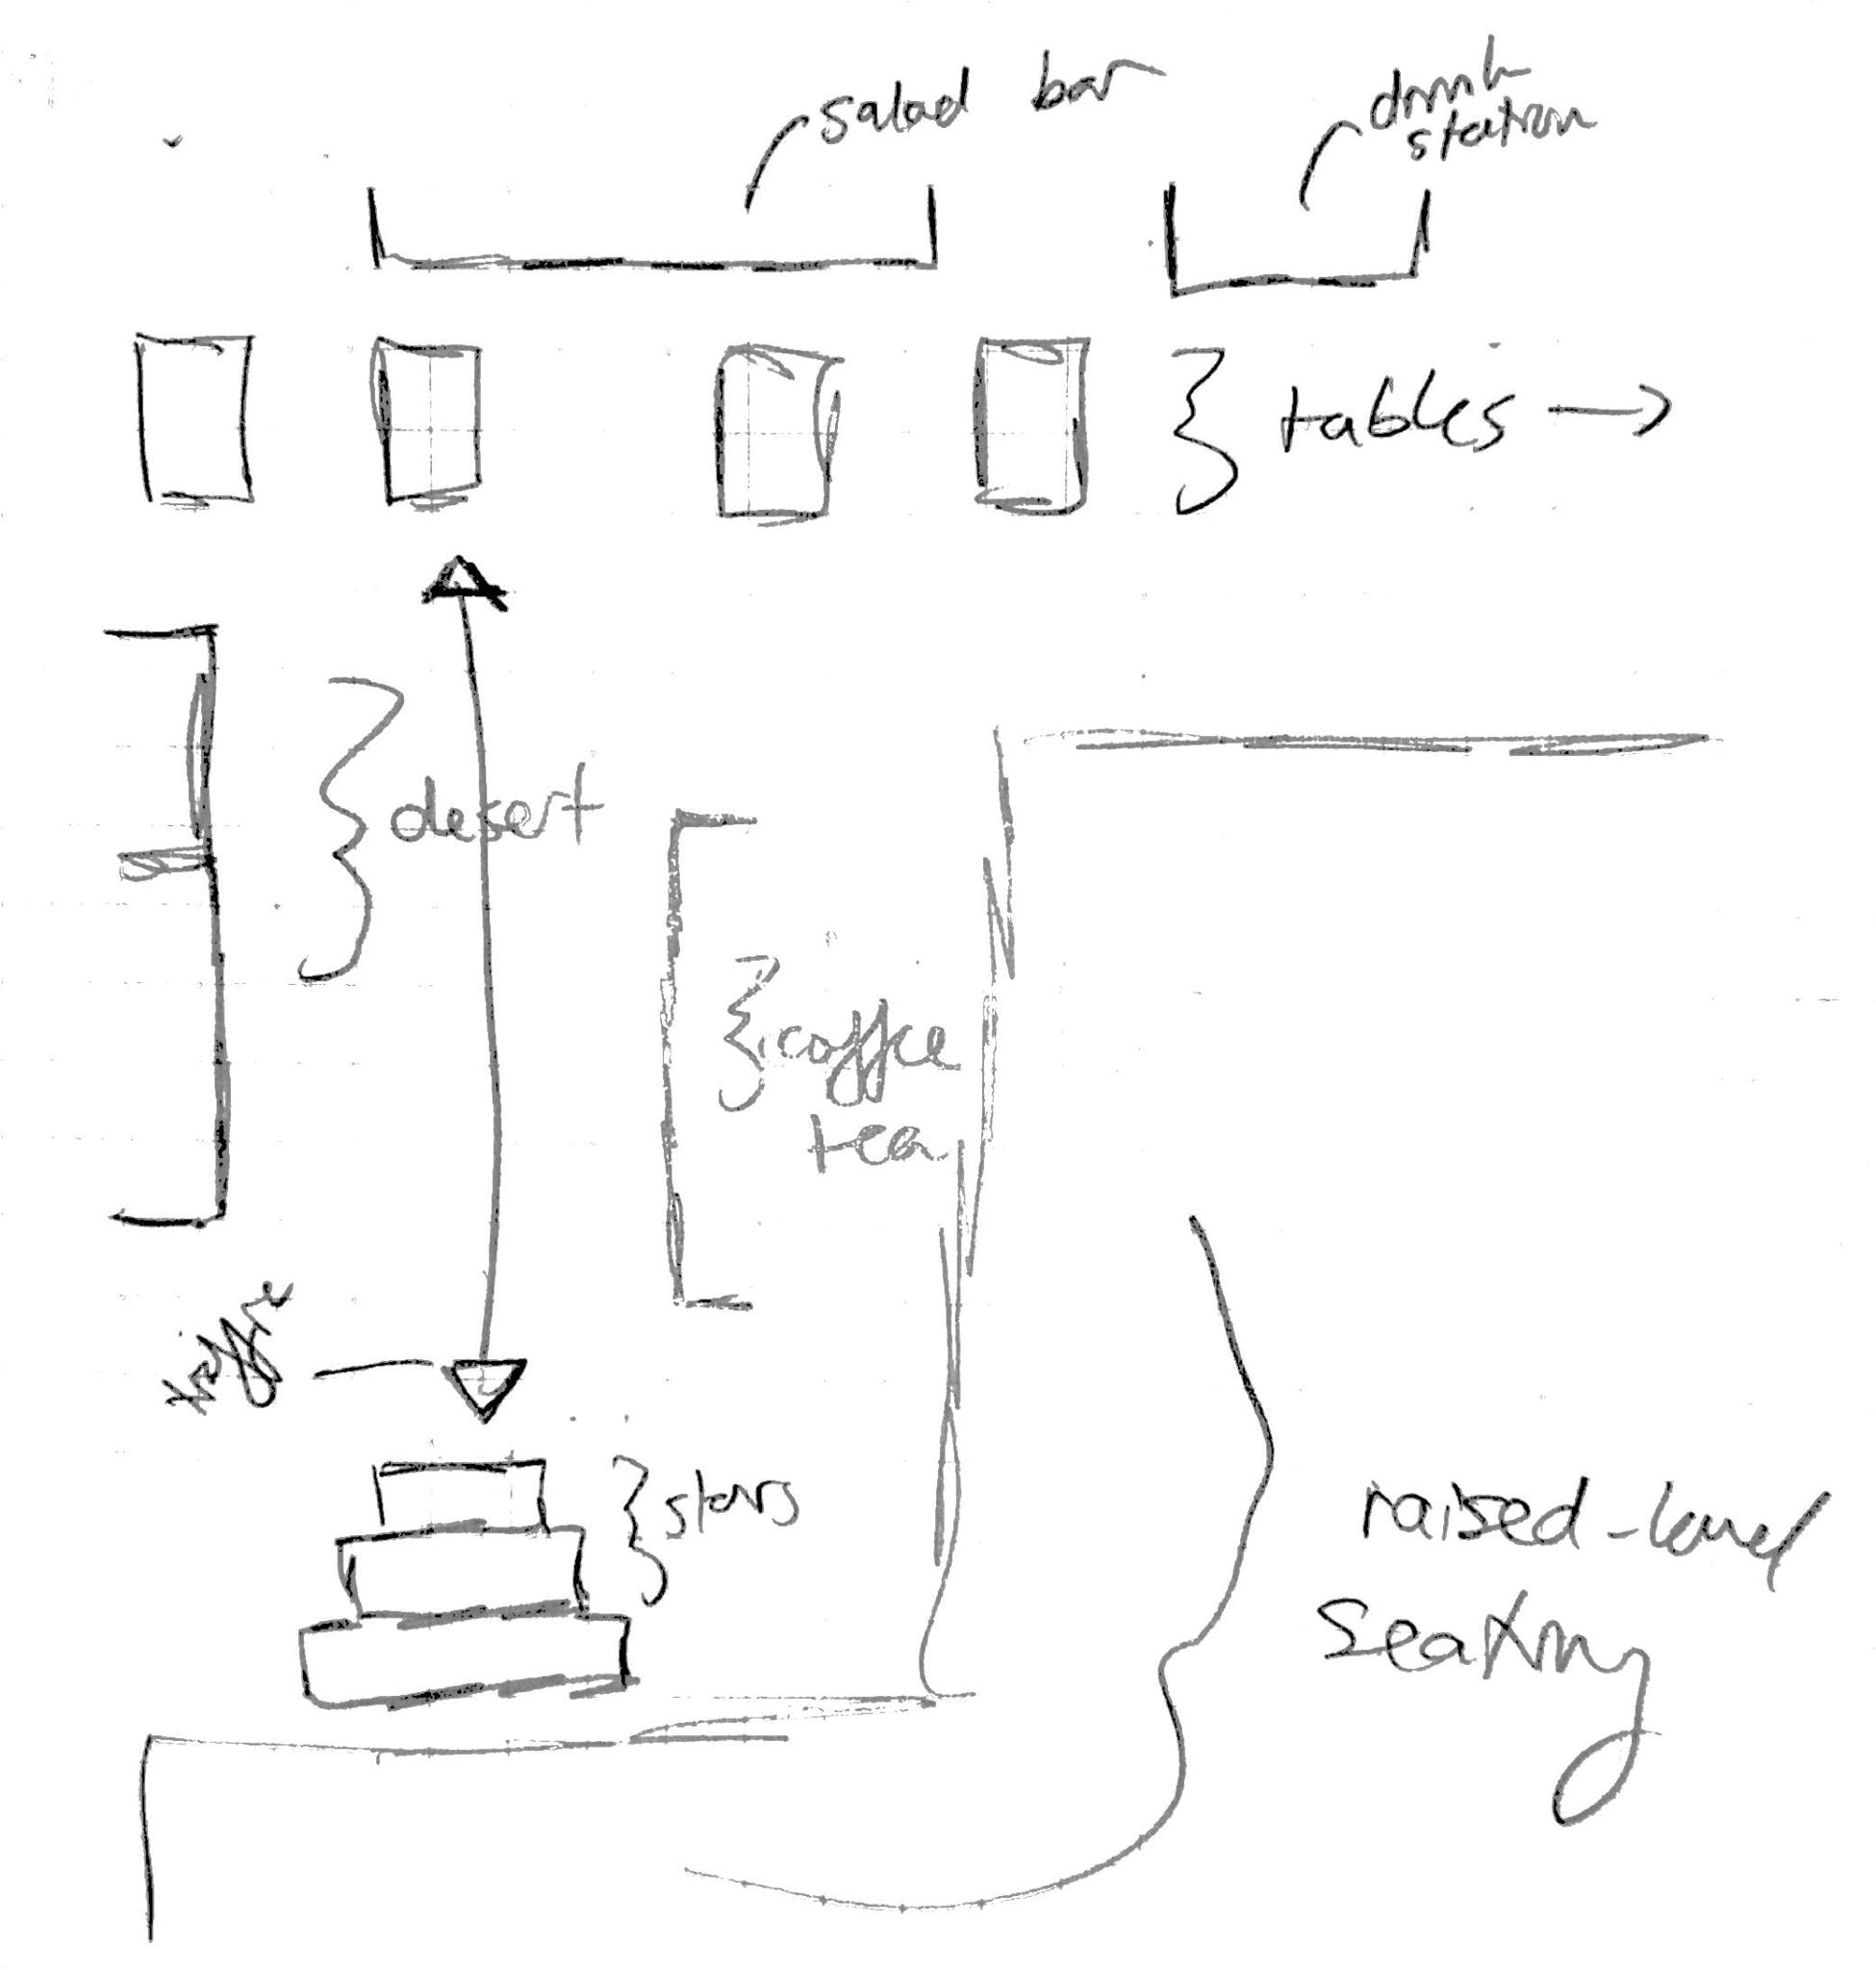 salad bar
drink
station
tables
desert
coffee
tea
traffic
stairs
raised-level
seating